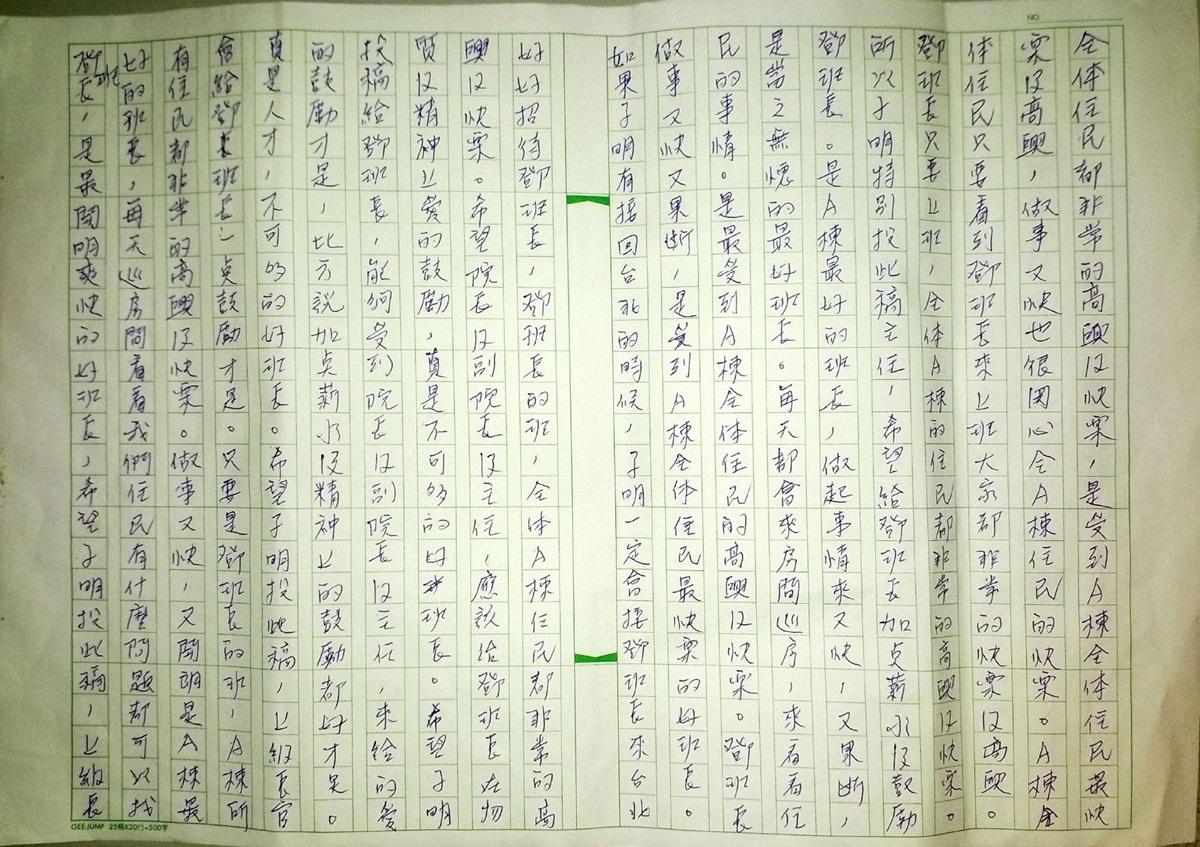 NO
全体住民都非常的高興及快樂，是受到A棟全体住民最快
樂及高興，做事又快也很関心全A棟住民的快樂。A棟全
体住民只要看到鄧班長來上班大家都非常的快樂及高興。
鄧班長只要上班，全体A棟的住民都非常的高興及快樂。
所以子明特别投此稿主任，希望給鄧班長加点薪水及鼓勵。
鄧班長。是A棟最好的班長，做起事情來又快，又果断，
是當之無愧的最好班長。每天都會來房間巡房，來看看住，
民的事情。是最受到A棟全体住民的高興及快樂。鄧班長
做事又快又果断，是受到A棟全体住民最快樂的好班長。
如果子明有接回台北的時候，子明一定會接鄧班長來台北
好好招待鄧班長，鄧班長的班，全体A棟住民都非常的高
興及快樂。希望院長及副院長及主任，應該給鄧班長在物
質及精神上愛的鼓勵，真是不可多的好班長。希望子明
投稿給鄧班長，能夠受到院長及副院長及主任，來給的愛
的鼓勵才是，比方說加点薪水及精神上的鼓勵，都好才是。
真是人才，不可多的好班長。希望子明投此稿，上級長官
會給鄧長班長一点鼓勵才是。只要是鄧班長的班，A棟所
有住民都非常的高興及快樂。做事又快，又開朗是A棟最
好的班長，每天巡房間看看我們住民有什麼問題都可以找
鄧班長，是最開明爽快的好班長，希望子明投此稿，上級長
GEE-JUMP 25格X20行=500字